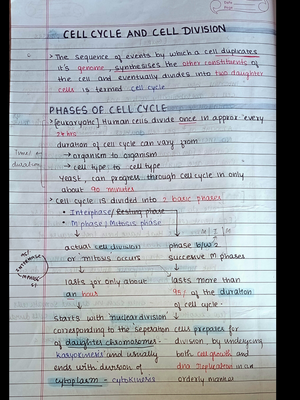 CELL CYCLE AND CELL DIVISION
> The sequence of events by which a cell duplicates
it's genome, synthesises the other constituents of
the cell and eventually divides into two daughter
cells is termed cell cycle
PHASES OF CELL CYCLE
> [eukaryotic] Human cells divide once in approx every
24 hrs
duration of cell cycle can vary from
→ organism to organism
→ cell type to cell type
Time/
duration
Yeast, can progress through cell cycle in only
about 90 minutes
> Cell cycle is divided into 2 basic phases
• Interphase/Resting phase
• M phase/Mitosis phase
actual cell division
or mitosis occurs
lasts for only about
an hour
starts with nuclear division
corresponding to the seperation
of daughter chromosomes-
Karyokinesis and usually
ends with division of
cytoplasm - cytokinesis
phase b/w 2
successive M phases
lasts more than
95% of the duration
of cell cycle-
cells prepares for
division by undergoing
both cell growth and
dna replication in an
orderly manner
INTERPHASE
M PHASE